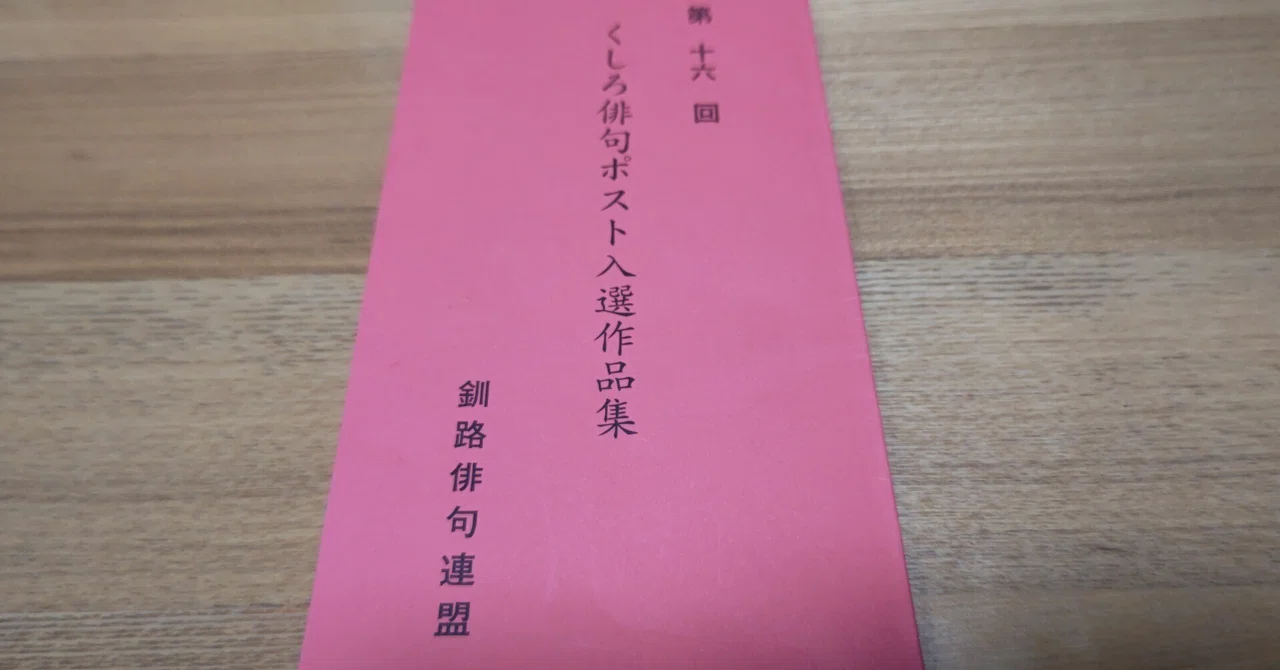 第十六回
くしろ俳句ポスト入選作品集
釧路俳句連盟